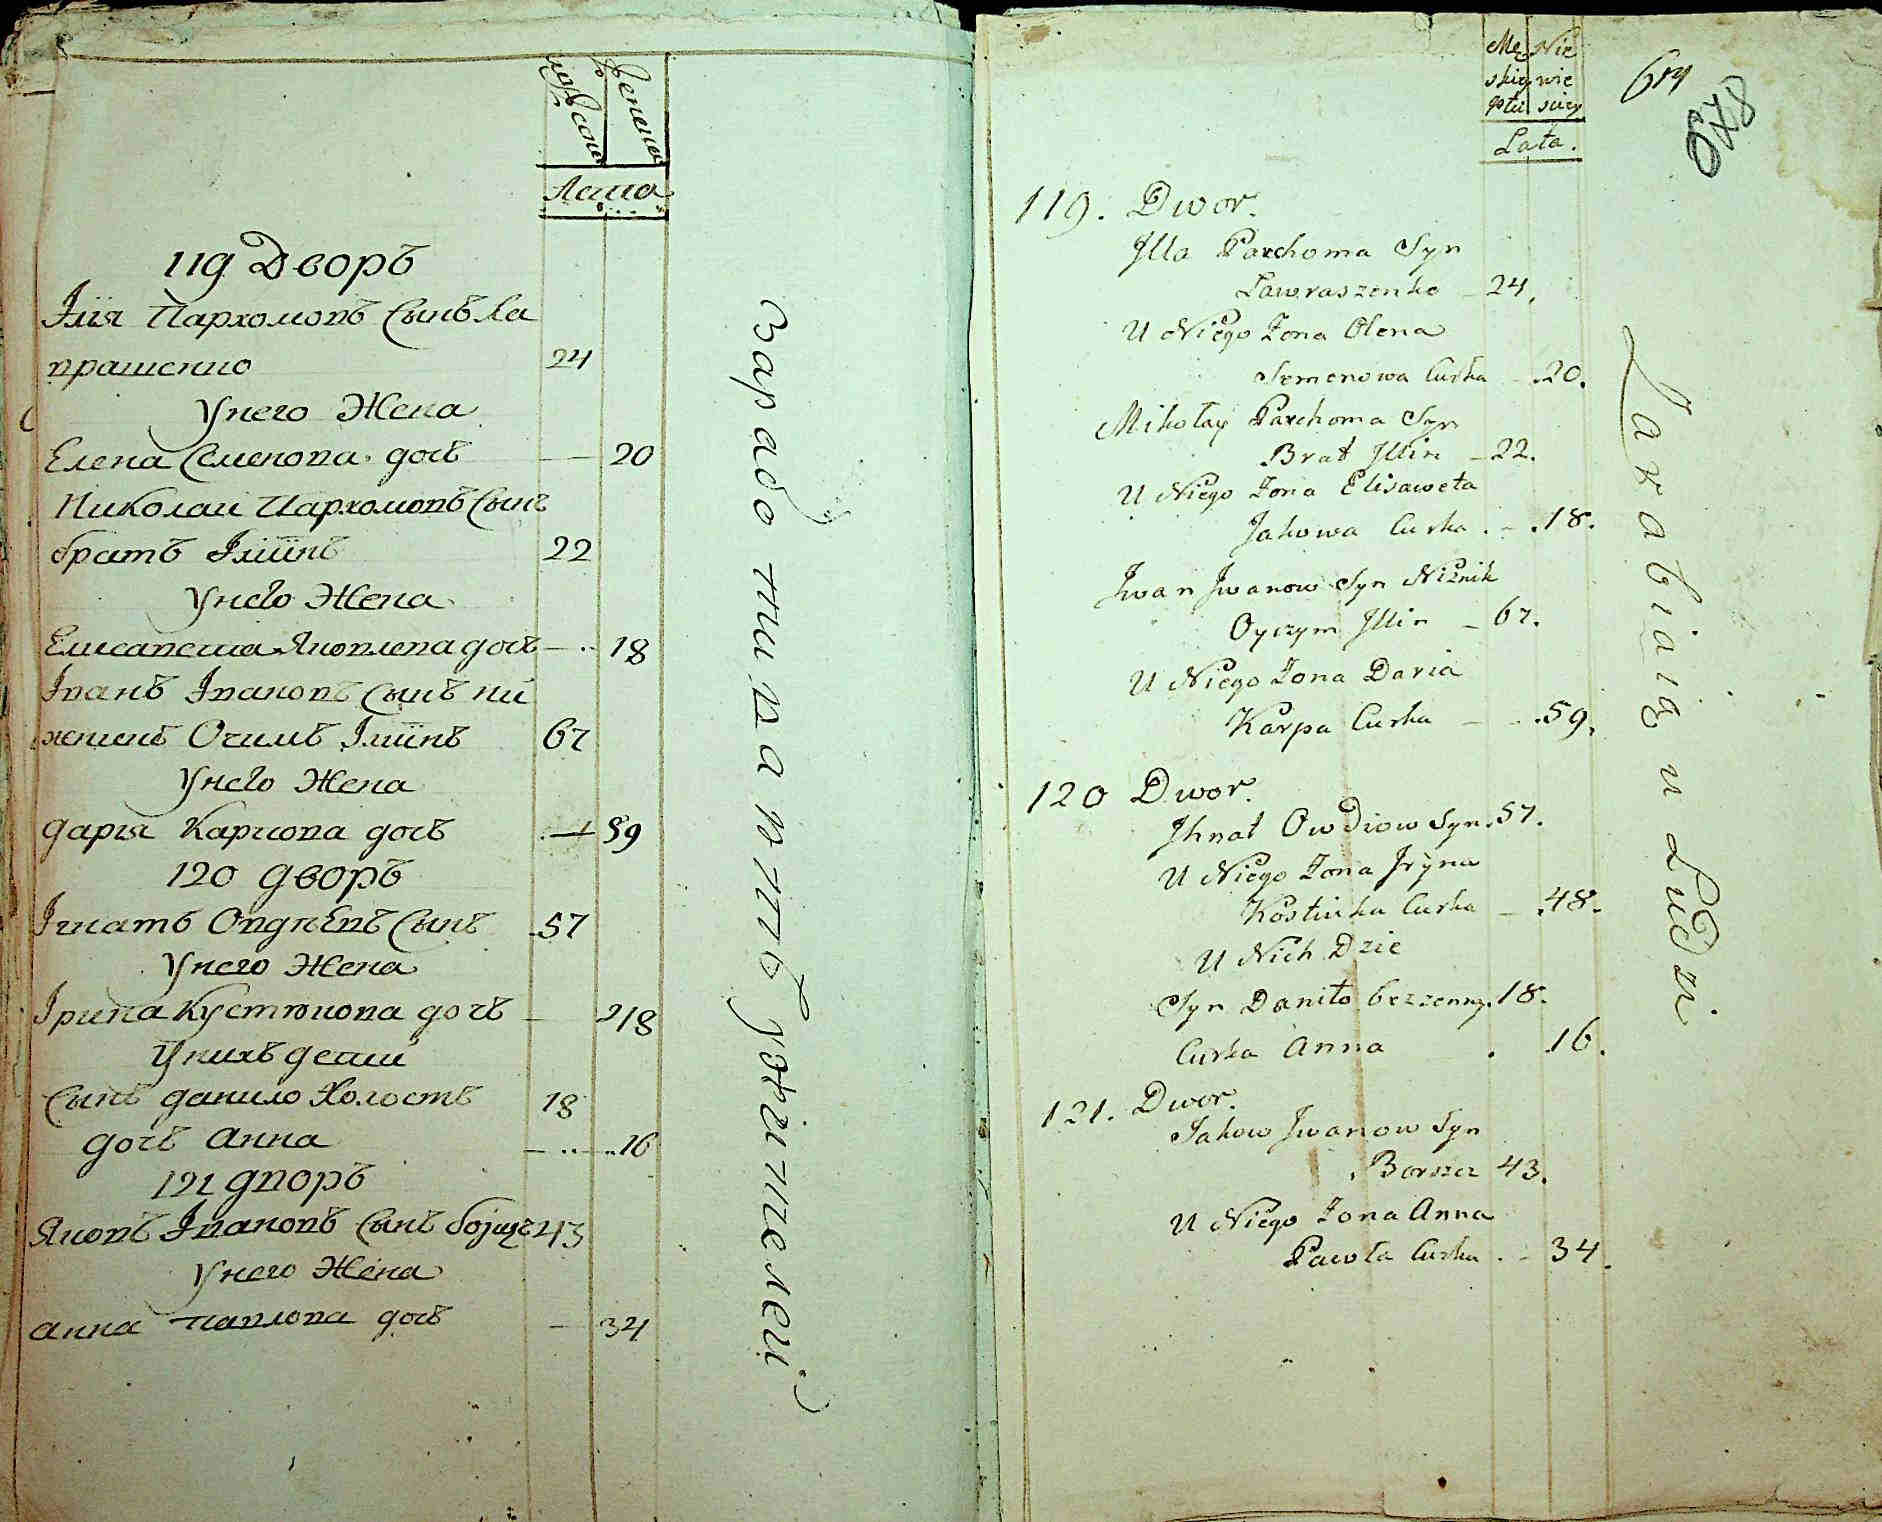 мужеска
женска
Лета
119 Дворъ
Ілія Пархомовъ Сынъ Ла
врашенко
24
Унего Жена
Елена Семенова дочъ
20
Николаи Пархомовъ Сынъ
братъ Іліинъ
22
Унего Жена
Елисавета Яковлева дочъ
18
Іванъ Івановъ Сынъ ни
жникъ Очимъ Іліинъ
67
Унего Жена
дарія Карпова дочъ
59
120 дворъ
Ігнатъ Овдѣевъ Сынъ
57
Унего Жена
Ірина Кустянова дочъ
48
Унихъ дети
Сынъ данило Холостъ
18
дочъ анна
16
121 дворъ
Яковъ Івановъ Сынъ борщъ
43
Унего Жена
анна павлова дочъ
34
Заработиваютъ у жителей
Mę Nie
skiey wie
płci sciey
Lata.
678
119. Dwor.
Illa Parchoma Syn
Lawraszenko 24.
U Niego Zona Olena
Semenowa Curka 20.
Mikołay Parchoma Syn
Brat Illin 22.
U Niego Zona Elisaweta
Jakowa Curka 18.
Jwan Jwanow Syn Niźnik
Oyczym Illin 67.
U Niego Zona Daria
Karpa Curka 59.
120 Dwor.
Jhnat Owdiow Syn 57.
U Niego Zona Jryna
Kostiuka Curka 48.
U Nich Dzie
Syn Daniło bezzenny 18.
Curka Anna 16.
121. Dwor.
Jakow Jwanow Syn
Borszcz 43.
U Niego Zona Anna
Pawła Curka 34.
Zarabiaią u Ludzi